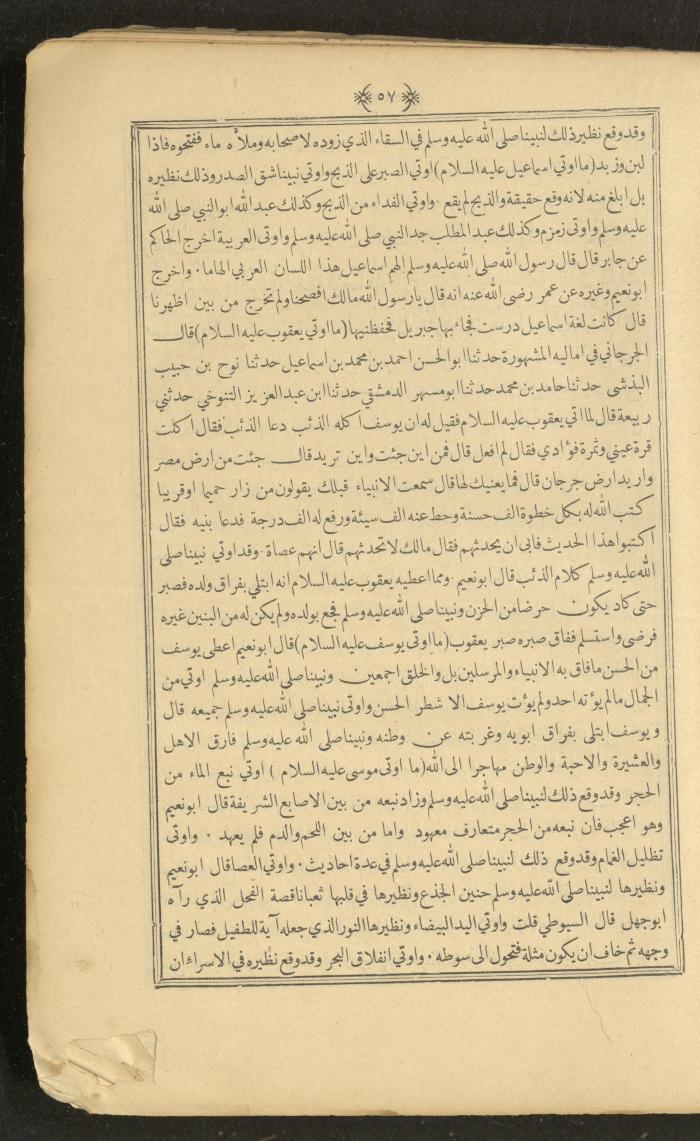 ٥٧
وقد وقع نظير ذلك لنبينا صلى الله عليه وسلم في السقاء الذي زوده لاصحابه وملأه ماء ففتحوه فاذا
لبن وزبد (ما اوتي اسماعيل عليه السلام) اوتي الصبر على الذبح واوتي نبينا شق الصدر وذلك نظيره
بل ابلغ منه لانه وقع حقيقة والذبح لم يقع . واوتي الفداء من الذبح وكذلك عبد الله ابو النبي صلى الله
عليه وسلم واوتى زمزم وكذلك عبد المطلب جد النبي صلى الله عليه وسلم واوتى العربية اخرج الحاكم
عن جابر قال قال رسول الله صلى الله عليه وسلم الهم اسماعيل هذا اللسان العربي الهاما . واخرج
ابو نعيم وغيره عن عمر رضى الله عنه انه قال يا رسول الله مالك افصحنا ولم تخرج من بين اظهرنا
قال كانت لغة اسماعيل درست فجاء بها جبريل فحفظنيها (ما اوتي يعقوب عليه السلام) قال
الجرجاني في اماليه المشهورة حدثنا ابو الحسن احمد بن محمد بن اسماعيل حدثنا نوح بن حبيب
البذشى حدثنا حامد بن محمد حدثنا ابو مسهر الدمشقي حدثنا ابن عبد العزيز التنوخي حدثني
ربيعة قال لما اتي يعقوب عليه السلام فقيل له ان يوسف اكله الذئب دعا الذئب فقال اكلت
قرة عيني وثمرة فؤادي فقال لم افعل قال فمن اين جئت واين تريد قال جئت من ارض مصر
واريد ارض جرجان قال فما يعنيك لها قال سمعت الانبياء قبلك يقولون من زار حميما او قريبا
كتب الله له بكل خطوة الف حسنة وحط عنه الف سيئة ورفع له الف درجة فدعا بنيه فقال
اكتبوا هذا الحديث فابى ان يحدثهم فقال مالك لا تحدثهم قال انهم عصاة . وقد اوتي نبينا صلى
الله عليه وسلم كلام الذئب قال ابو نعيم . ومما اعطيه يعقوب عليه السلام انه ابتلي بفراق ولده فصبر
حتى كاد يكون حرضا من الحزن ونبينا صلى الله عليه وسلم فجع بولده ولم يكن له من البنين غيره
فرضى واستسلم ففاق صبره صبر يعقوب (ما اوتي يوسف عليه السلام) قال ابو نعيم اعطى يوسف
من الحسن ما فاق به الانبياء والمرسلين بل والخلق اجمعين ونبينا صلى الله عليه وسلم اوتي من
الجمال ما لم يؤته احد ولم يؤت يوسف الا شطر الحسن واوتى نبينا صلى الله عليه وسلم جميعه قال
ويوسف ابتلى بفراق ابويه وغربته عن وطنه ونبينا صلى الله عليه وسلم فارق الاهل
والعشيرة والاحبة والوطن مهاجرا الى الله (ما اوتى موسى عليه السلام) اوتي نبع الماء من
الحجر وقد وقع ذلك لنبينا صلى الله عليه وسلم وزاد نبعه من بين الاصابع الشريفة قال ابو نعيم
وهو اعجب فان نبعه من الحجر متعارف معهود واما من بين اللحم والدم فلم يعهد . واوتى
تظليل الغمام وقد وقع ذلك لنبينا صلى الله عليه وسلم في عدة احاديث . واوتي العصا قال ابو نعيم
ونظيرها لنبينا صلى الله عليه وسلم حنين الجذع ونظيرها في قلبها ثعبانا قصة الفحل الذي رآه
ابو جهل قال السيوطي قلت واوتي اليد البيضاء ونظيرها النور الذي جعله آية للطفيل فصار في
وجهه ثم خاف ان يكون مثلة فتحول الى سوطه . واوتي انفلاق البحر وقد وقع نظيره في الاسراء ان